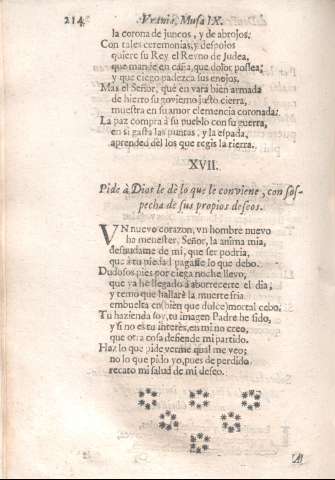 214. Vrania, Musa IX.
la corona de juncos, y de abrojos.
Con tales ceremonias, y despojos
quiere su Rey el Reyno de Judea,
que mande en caña, que dolor possea;
y que ciego padezca sus enojos.
Mas el Señor, que en vara bien armada
de hierro su govierno justo cierra,
muestra en su amor clemencia coronada.
La paz compra à su pueblo con su guerra,
en sì gasta las puntas, y la espada,
aprended dèl los que regis la tierra.
XVII.
Pide à Dios le dè lo que le conviene, con sos-
pecha de sus propios deseos.
VN nuevo corazon, vn hombre nuevo
ha menester, Señor, la anima mia,
desnudame de mi, que ser podria,
que à tu piedad pagasse lo que debo.
Dudosos pies por ciega noche llevo,
que ya he llegado à aborrecerte el dia;
y temo que hallarè la muerte fria
embuelta en (bien que dulce) mortal cebo.
Tu hazienda soy, tu imagen Padre he sido,
y si no es tu interès, en mi no creo,
que otra cosa defiende mi partido.
Haz lo que pide verme qual me veo;
no lo que pido yo, pues de perdido
recato mi salud de mi deseo.
A